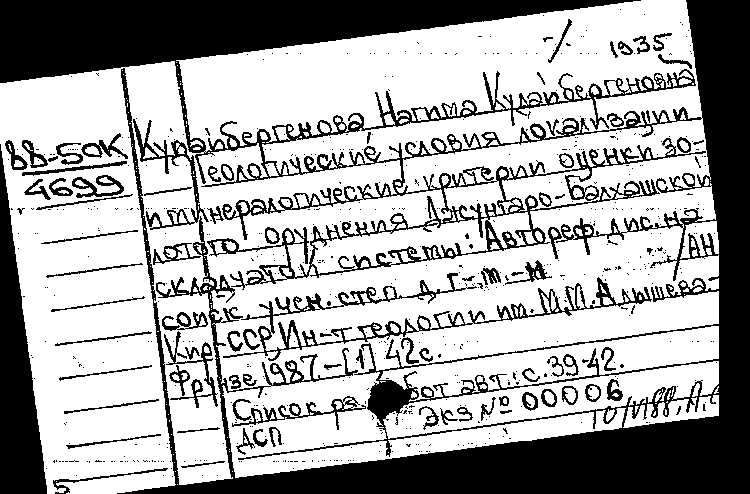 1935
88-5ОК
4699
Кулайбергенова Нагима Кулайбергеновна
Геологические условия локализации
и минералогические критерии оценки зо-
лотого оруднения Джунгаро-Балхашской
складчатой системы: Автореф. дис. на
соиск. учен. степ. д. г.-м.-н /АН
Кирг ССР, Ин-т геологии им. М.М. Адышева.-
Фрунзе, 1987.-[1], 42 с.
Список работ авт.: с. 39-42.
ДСП Экз № 00006
5